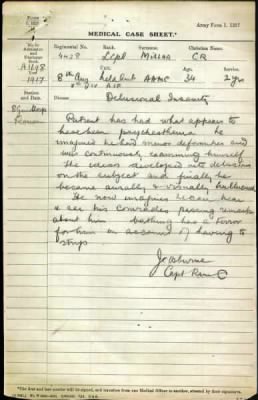 Army Form I. 1237
MEDICAL CASE SHEET.*
No. in Admission and Discharge Book.
Regimental No. Rank. Surname. Christian Name.
4438 L/Cpl Millar CR
Year 1917
Unit. Age. Service.
8th Aus Field Amb AAMC 34 2 yrs
Station and Date.
Disease Delusional Insanity
Patient has had what appears to
have been psychasthenia he
imagined he had minor deformities and
was continuously examining himself
The ideas developed into delusions
on the subject and finally he
became aurally & visually hallucined
He now imagines he can hear
& see his comrades passing remarks
about him bathing has a terror
for him on account of having to
strip
Capt RAMC
* The first and last entries will be signed, and transfers from one Medical Officer to another, attested by their signatures.